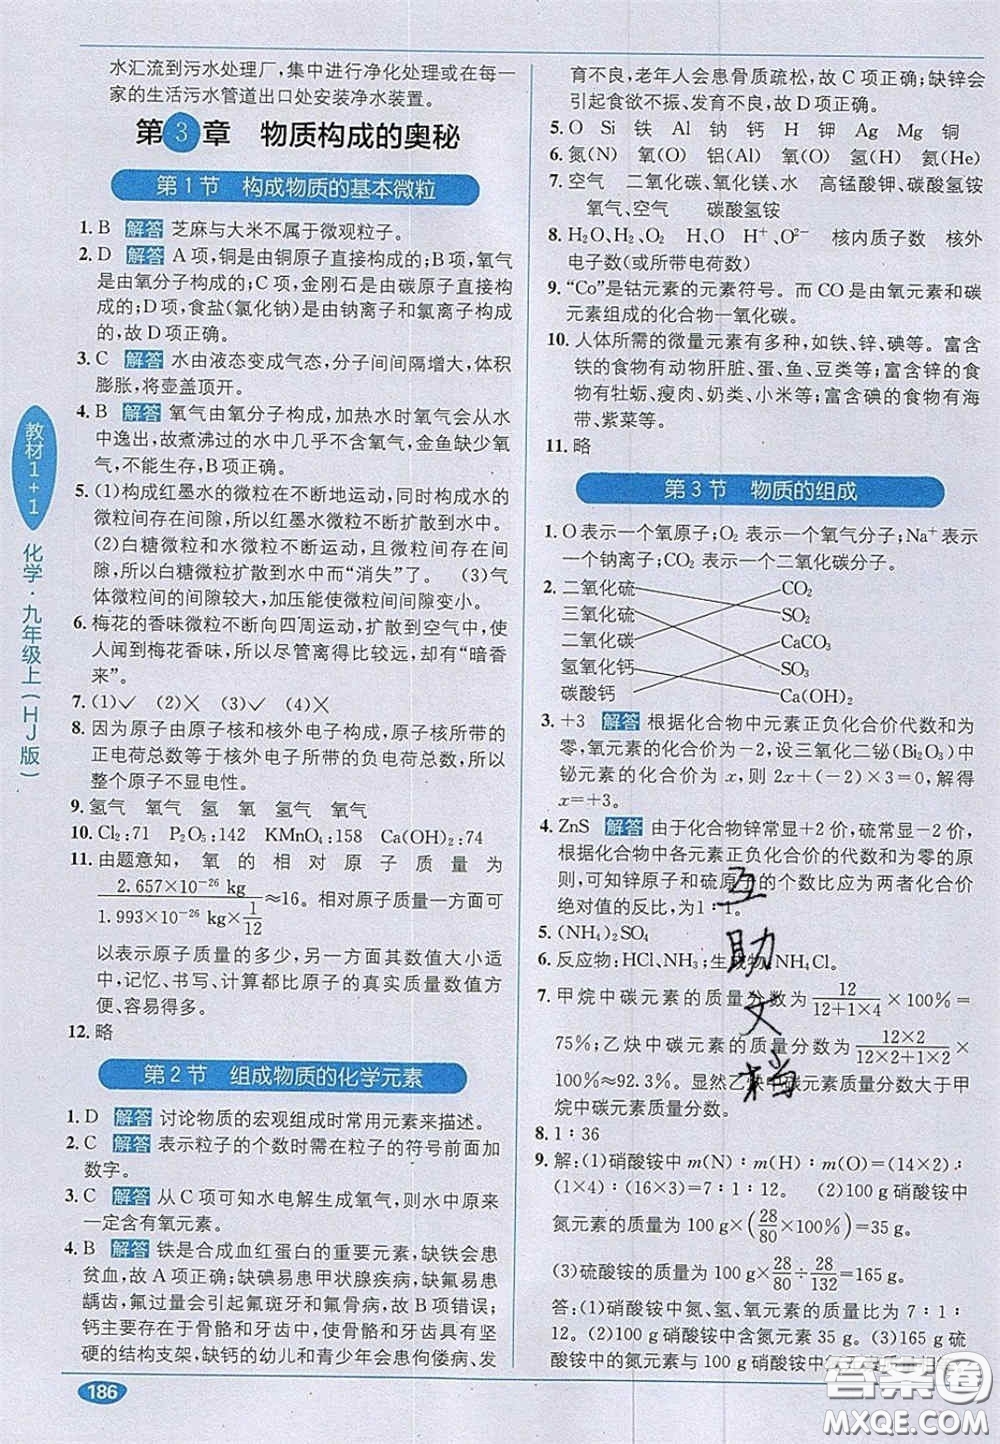 水汇流到污水处理厂,集中进行净化处理或在每一
家的生活污水管道出口处安装净水装置。
第3章 物质构成的奥秘
第1节 构成物质的基本微粒
1. B 解答 芝麻与大米不属于微观粒子。
2. D 解答 A项,铜是由铜原子直接构成的;B项,氧气
是由氧分子构成的;C项,金刚石是由碳原子直接构
成的;D项,食盐(氯化钠)是由钠离子和氯离子构成
的。故D项正确。
3. C 解答 水由液态变成气态,分子间间隔增大,体积
膨胀,将壶盖顶开。
4. B 解答 氧气由氧分子构成,加热水时氧气会从水
中逸出,故煮沸过的水中几乎不含氧气,金鱼缺少氧
气,不能生存,B项正确。
5. (1)构成红墨水的微粒在不断地运动,同时构成水的
微粒间存在间隙,所以红墨水不断扩散到水中。
(2)白糖微粒和水微粒不断运动,且微粒间存在间
隙,所以白糖微粒扩散到水中而“消失”了。 (3)气
体微粒间的间隙较大,加压微粒间间隙变小。
6. 梅花的香味微粒不断向四周运动,扩散到空气中,使
人闻到梅花香味,所以尽管离得比较远,却有“暗香
来”。
7. (1)✓ (2)× (3)✓ (4)×
8. 因为原子由原子核和核外电子构成,原子核所带的
正电荷总数等于核外电子所带的负电荷总数,所以
整个原子不显电性。
9. 氢气 氧气 氢 氧 氢气 氧气
10. Cl₂:71 P₂O₅:142 KMnO₄:158 Ca(OH)₂:74
11. 由题意知,氧的相对原子质量为
2.657×10⁻²⁶ kg / (1.993×10⁻²⁶ kg×1/12) ≈16。相对原子质量可
以表示原子质量的多少,另一方面其数值大小适
中,记忆、书写、计算都比原子的真实质量数值方
便、容易得多。
12. 略
第2节 组成物质的化学元素
1. D 解答 讨论物质的宏观组成时常用元素来描述。
2. C 解答 表示粒子的个数时需在粒子的符号前面加
数字。
3. C 解答 从C项可知水电解生成氧气,则水中原来
一定含有氧元素。
4. B 解答 铁是合成血红蛋白的重要元素,缺铁会患
贫血,故A项正确;缺碘易患甲状腺疾病,缺氟易患
龋齿,氟过量会引起氟斑牙和氟骨病,故B项错误;
钙主要存在于骨骼和牙齿中,使骨骼和牙齿具有坚
硬的结构支架,缺钙的幼儿和青少年会患佝偻病、发
育不良,老年人会患骨质疏松,故C项正确;缺锌会
引起食欲不振、发育不良,故D项正确。
5. O Si 铁 Al 钠 钙 H Ag Mg 铜
6. 氮(N) 氧(O) 碳(C) 氢(H) 氦(He)
7. 空气 二氧化碳、氧化镁、水 高锰酸钾、碳酸氢铵
氧气、空气 碳酸氢铵
8. H₂O、H₂、O₂ H、O H⁺、O²⁻ 核内质子数 核外
电子数(或所带电荷数)
9. “Co”是钴元素的元素符号。而CO是由氧元素和碳
元素组成的化合物—氧化碳。
10. 人体所需的微量元素有多种,如铁、锌、碘等。富含
铁的食物有动物肝脏、蛋、鱼、豆类等;富含锌的食
物有牡蛎、瘦肉、奶类、小米等;富含碘的食物有海
带、紫菜等。
11. 略
第3节 物质的组成
1. O表示一个氧原子;O₂表示一个氧气分子;Na⁺表示
一个钠离子;CO₂表示一个二氧化碳分子。
2. 二氧化硫 CO₂
三氧化硫 SO₂
二氧化碳 CaCO₃
氢氧化钙 SO₃
碳酸钙 Ca(OH)₂
3. +3 解答 根据化合物中元素正负化合价代数和为
零,氧元素的化合价为-2,设三氧化二铋(Bi₂O₃)中
铋元素的化合价为x,则2x+(-2)×3=0,解得
x=+3。
4. ZnS 解答 由于化合物锌常显+2价,硫常显-2价,
根据化合物中各元素正负化合价的代数和为零的原
则,可知锌原子和硫原子的个数比应为两者化合价
绝对值的反比,为1∶1。
5. (NH₄)₂SO₄
6. 反应物:HCl、NH₃;生成物:NH₄Cl。
7. 甲烷中碳元素的质量分数为12/(12+1×4)×100%=
75%;乙炔中碳元素的质量分数为(12×2)/(12×2+1×2)
×100%≈92.3%。显然乙炔中碳元素质量分数大于甲
烷中碳元素质量分数。
8. 1∶36
9. 解:(1)硝酸铵中m(N)∶m(H)∶m(O)=(14×2)∶
(1×4)∶(16×3)=7∶1∶12。 (2)100 g硝酸铵中
氮元素的质量为100 g×(28/80×100%)=35 g。
(3)硫酸铵的质量为100 g×28/80÷28/132=165 g。
答:(1)硝酸铵中氮、氢、氧元素的质量比为7∶1∶
12。(2)100 g硝酸铵中含氮元素35 g。(3)165 g硫
酸铵中的氮元素与100 g硝酸铵中氮元素质量相
教材1+1 化学·九年级上(HJ版)
186
互助文档
答案圈
MXQE.COM